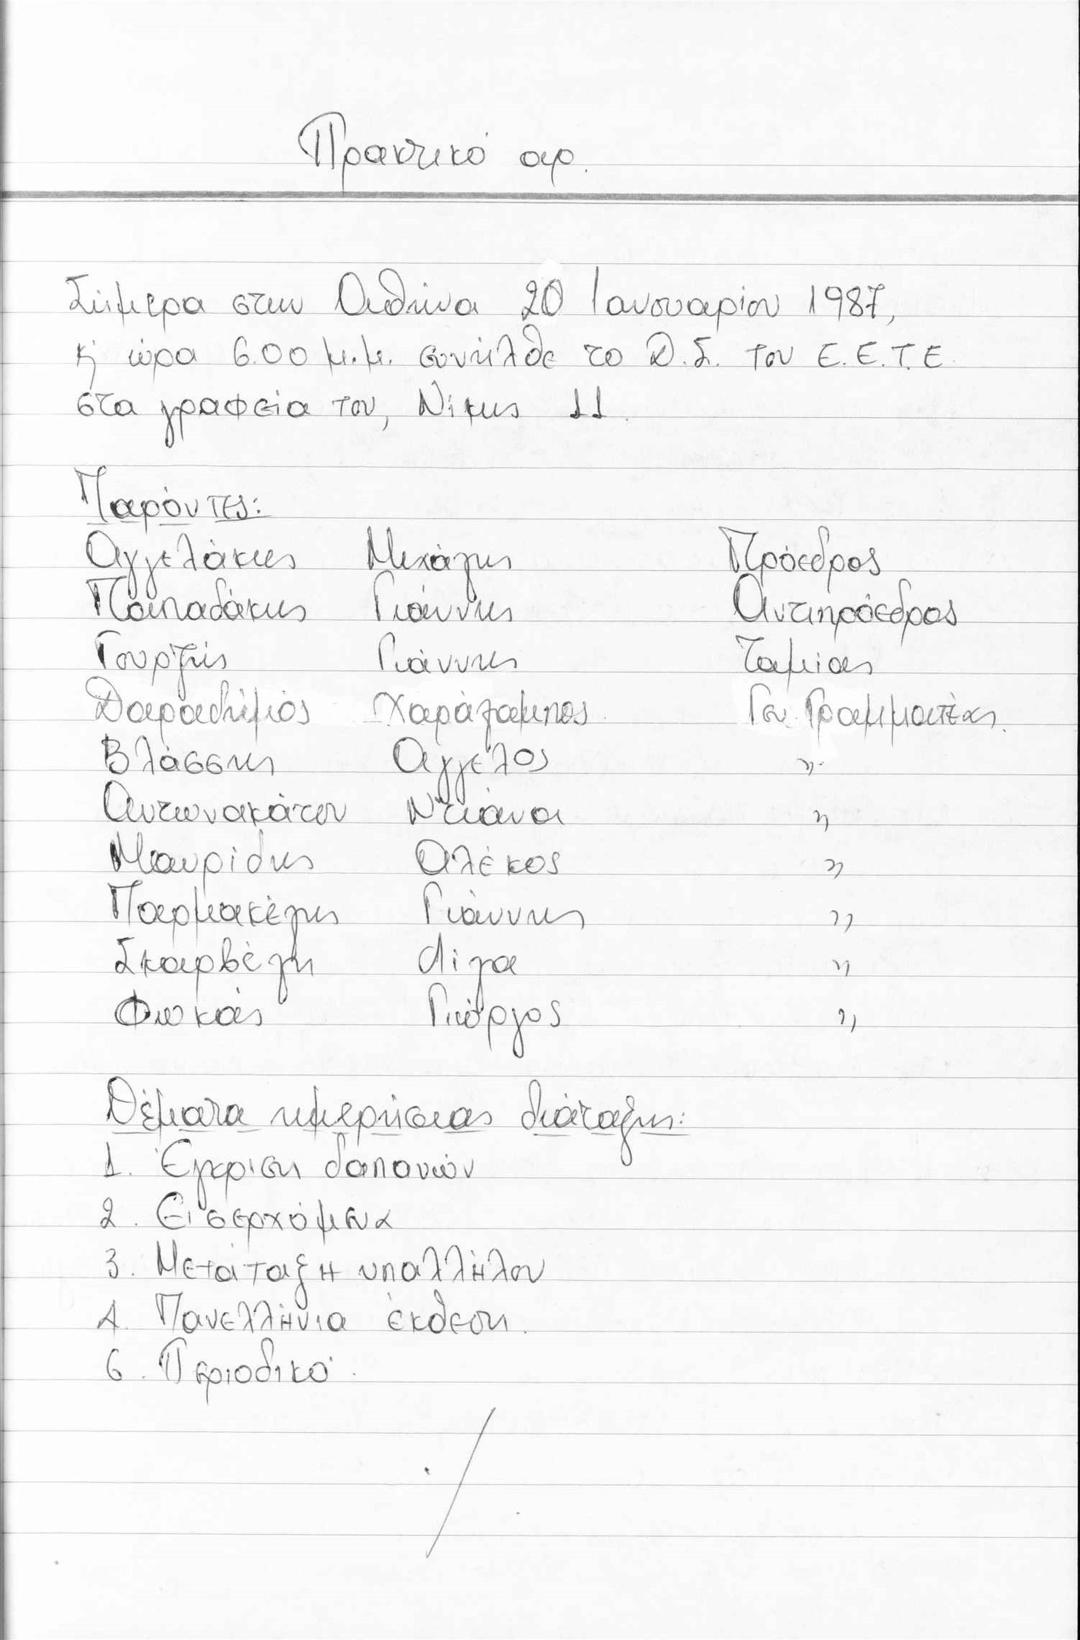 Πρακτικό αρ.
Σήμερα στην Αθήνα 20 Ιανουαρίου 1987,
ώρα 6.00 μ.μ. συνήλθε το Δ.Σ. του Ε.Ε.Τ.Ε
στα γραφεία του, Νίκης 11.
Παρόντες:
Αγγελάκης Μιχάλης Πρόεδρος
Παπαδάκης Γιάννης Αντιπρόεδρος
Γουρζής Γιάννης Ταμίας
Δαραδήμος Χαράλαμπος Γεν. Γραμματέας.
Βλάσσης Άγγελος 〃
Αντωνακάτου Ντιάνα 〃
Μαυρίδης Αλέκος 〃
Παρμακέλης Γιάννης 〃
Σκαρβέλη Λίλα 〃
Φωκάς Γιώργος 〃
Θέματα ημερήσιας διάταξης:
1. Έγκριση δαπανών
2. Εισερχόμενα
3. Μετάταξη υπαλλήλου
4. Πανελλήνια έκθεση.
6. Περιοδικό.